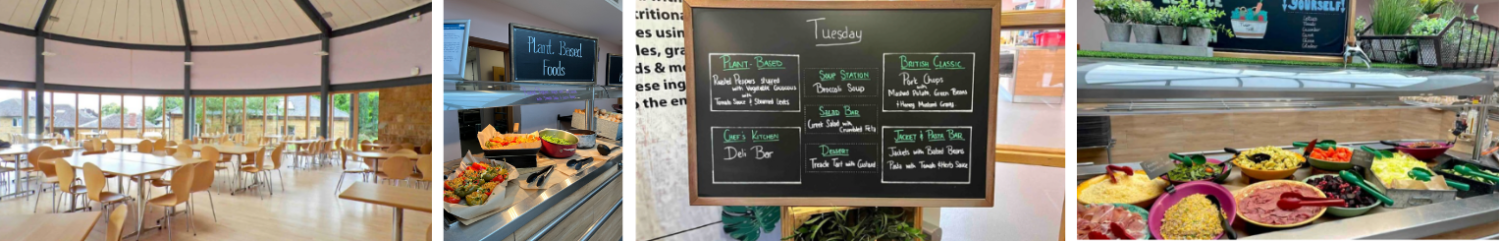 Plant Based
Foods
ritiona
es usin
les, gra
ds & me
ese ing
o the en
Tuesday
PLANT-BASED
Roasted Peppers stuffed
with Vegetable Couscous
with
Tomato Sauce & Steamed Leeks
CHEF'S KITCHEN
Deli Bar
SOUP STATION
Broccoli Soup
SALAD BAR
Greek Salad with
Crumbled Feta
DESSERT
Treacle Tart with Custard
BRITISH CLASSIC
Pork Chops
with
Mashed Potato, Green Beans
+ Honey Mustard Gravy
JACKET & PASTA BAR
Jackets with Baked Beans
Pasta with Tomato & Herb Sauce
YOURSELF!